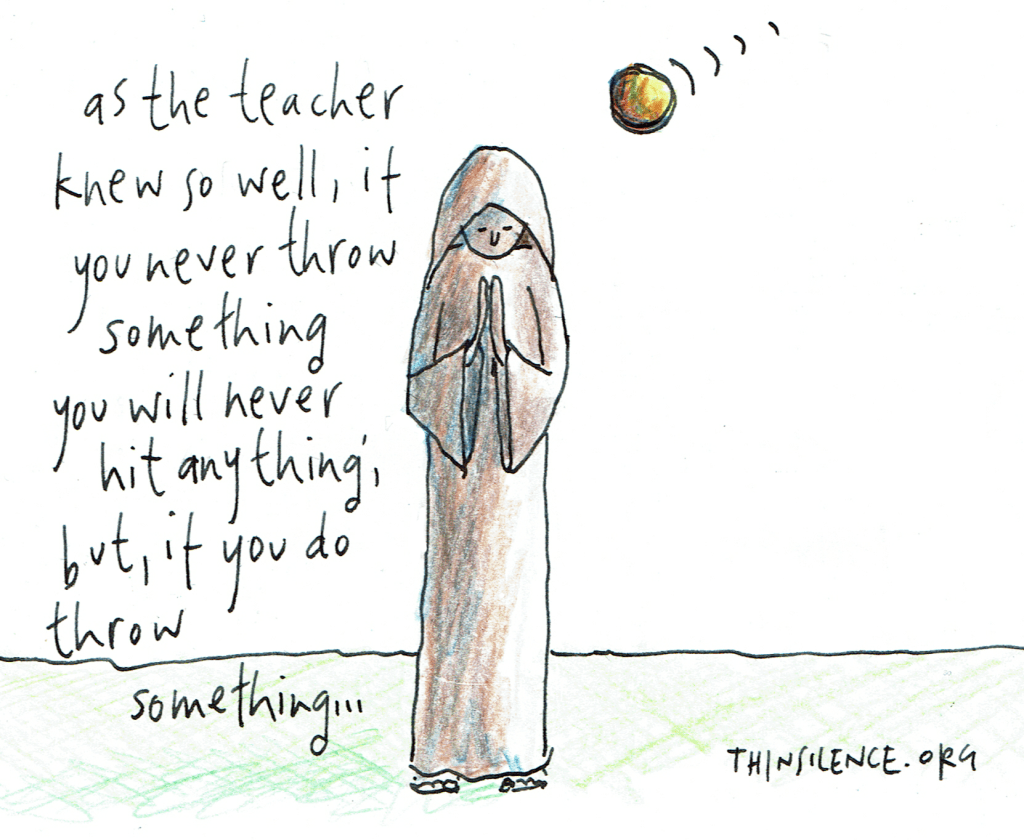 as the teacher
knew so well, if
you never throw
something
you will never
hit anything;
but, if you do
throw
something...
THINSILENCE.ORG